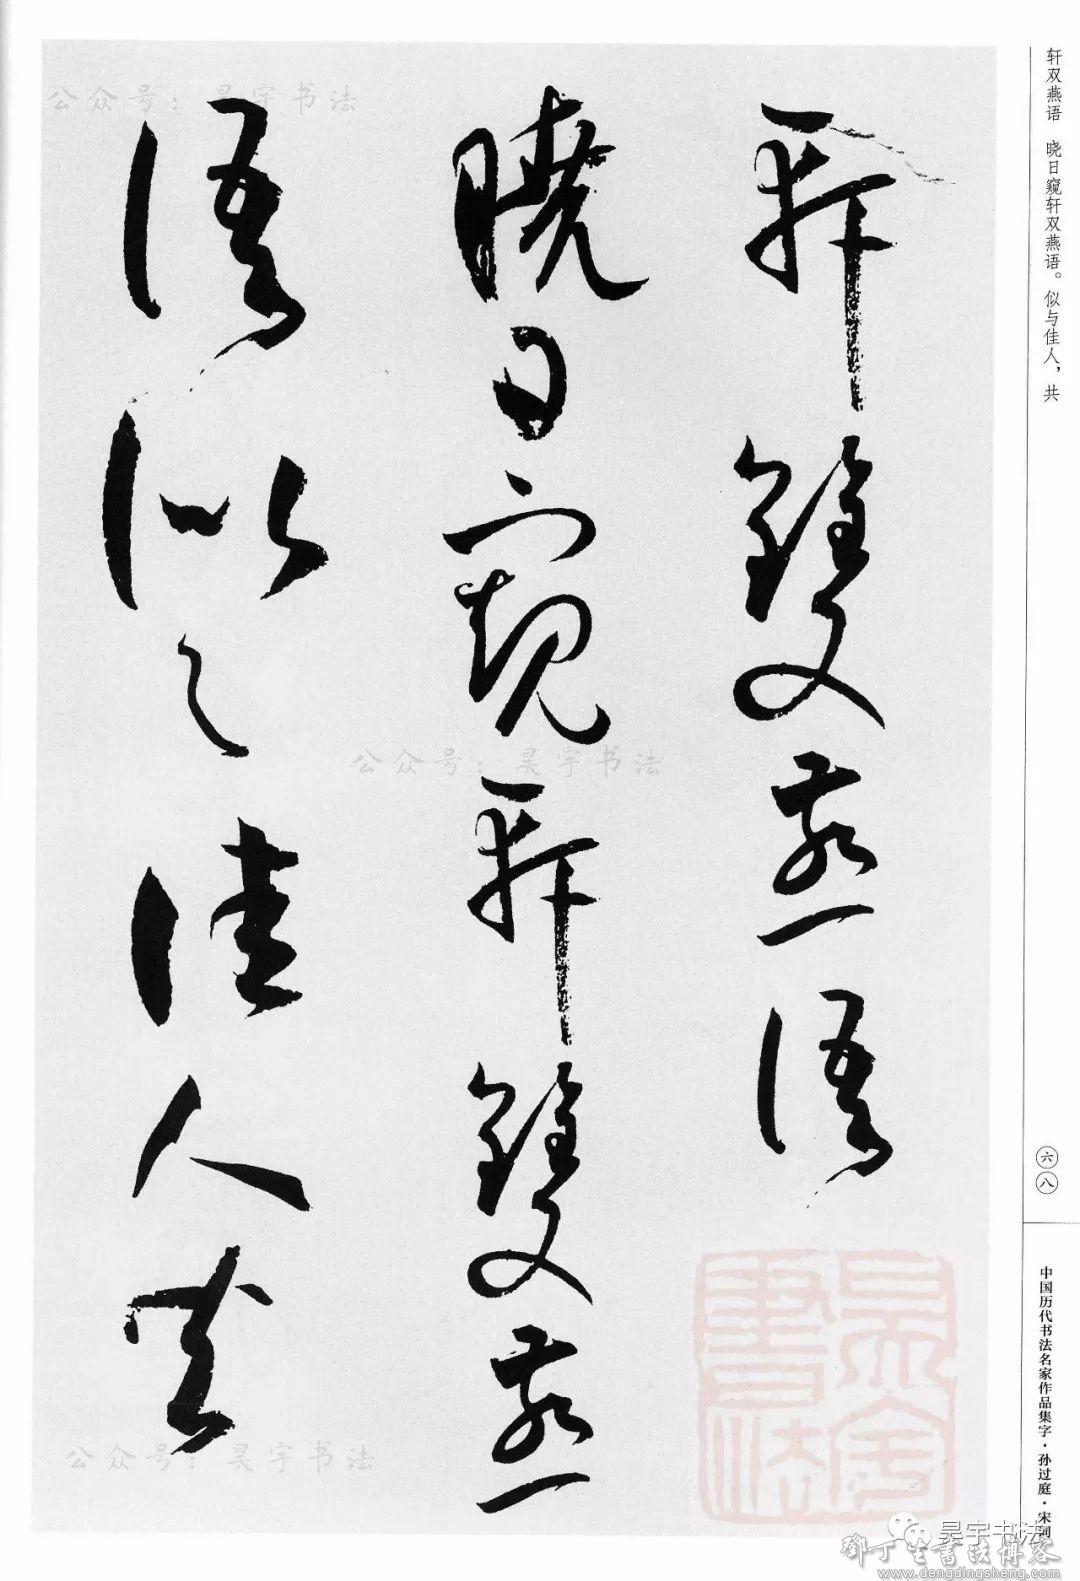 轩双燕语　晓日窥轩双燕语。似与佳人，共
軒雙燕語
曉日窺軒雙燕
語似与佳人共
六八
中国历代书法名家作品集字·孙过庭·宋词
公众号：昊宇书法
公众号：昊宇书法
公众号：昊宇书法
昊宇書法
昊宇书法
鄧丁生書法博客
www.dengdingsheng.com